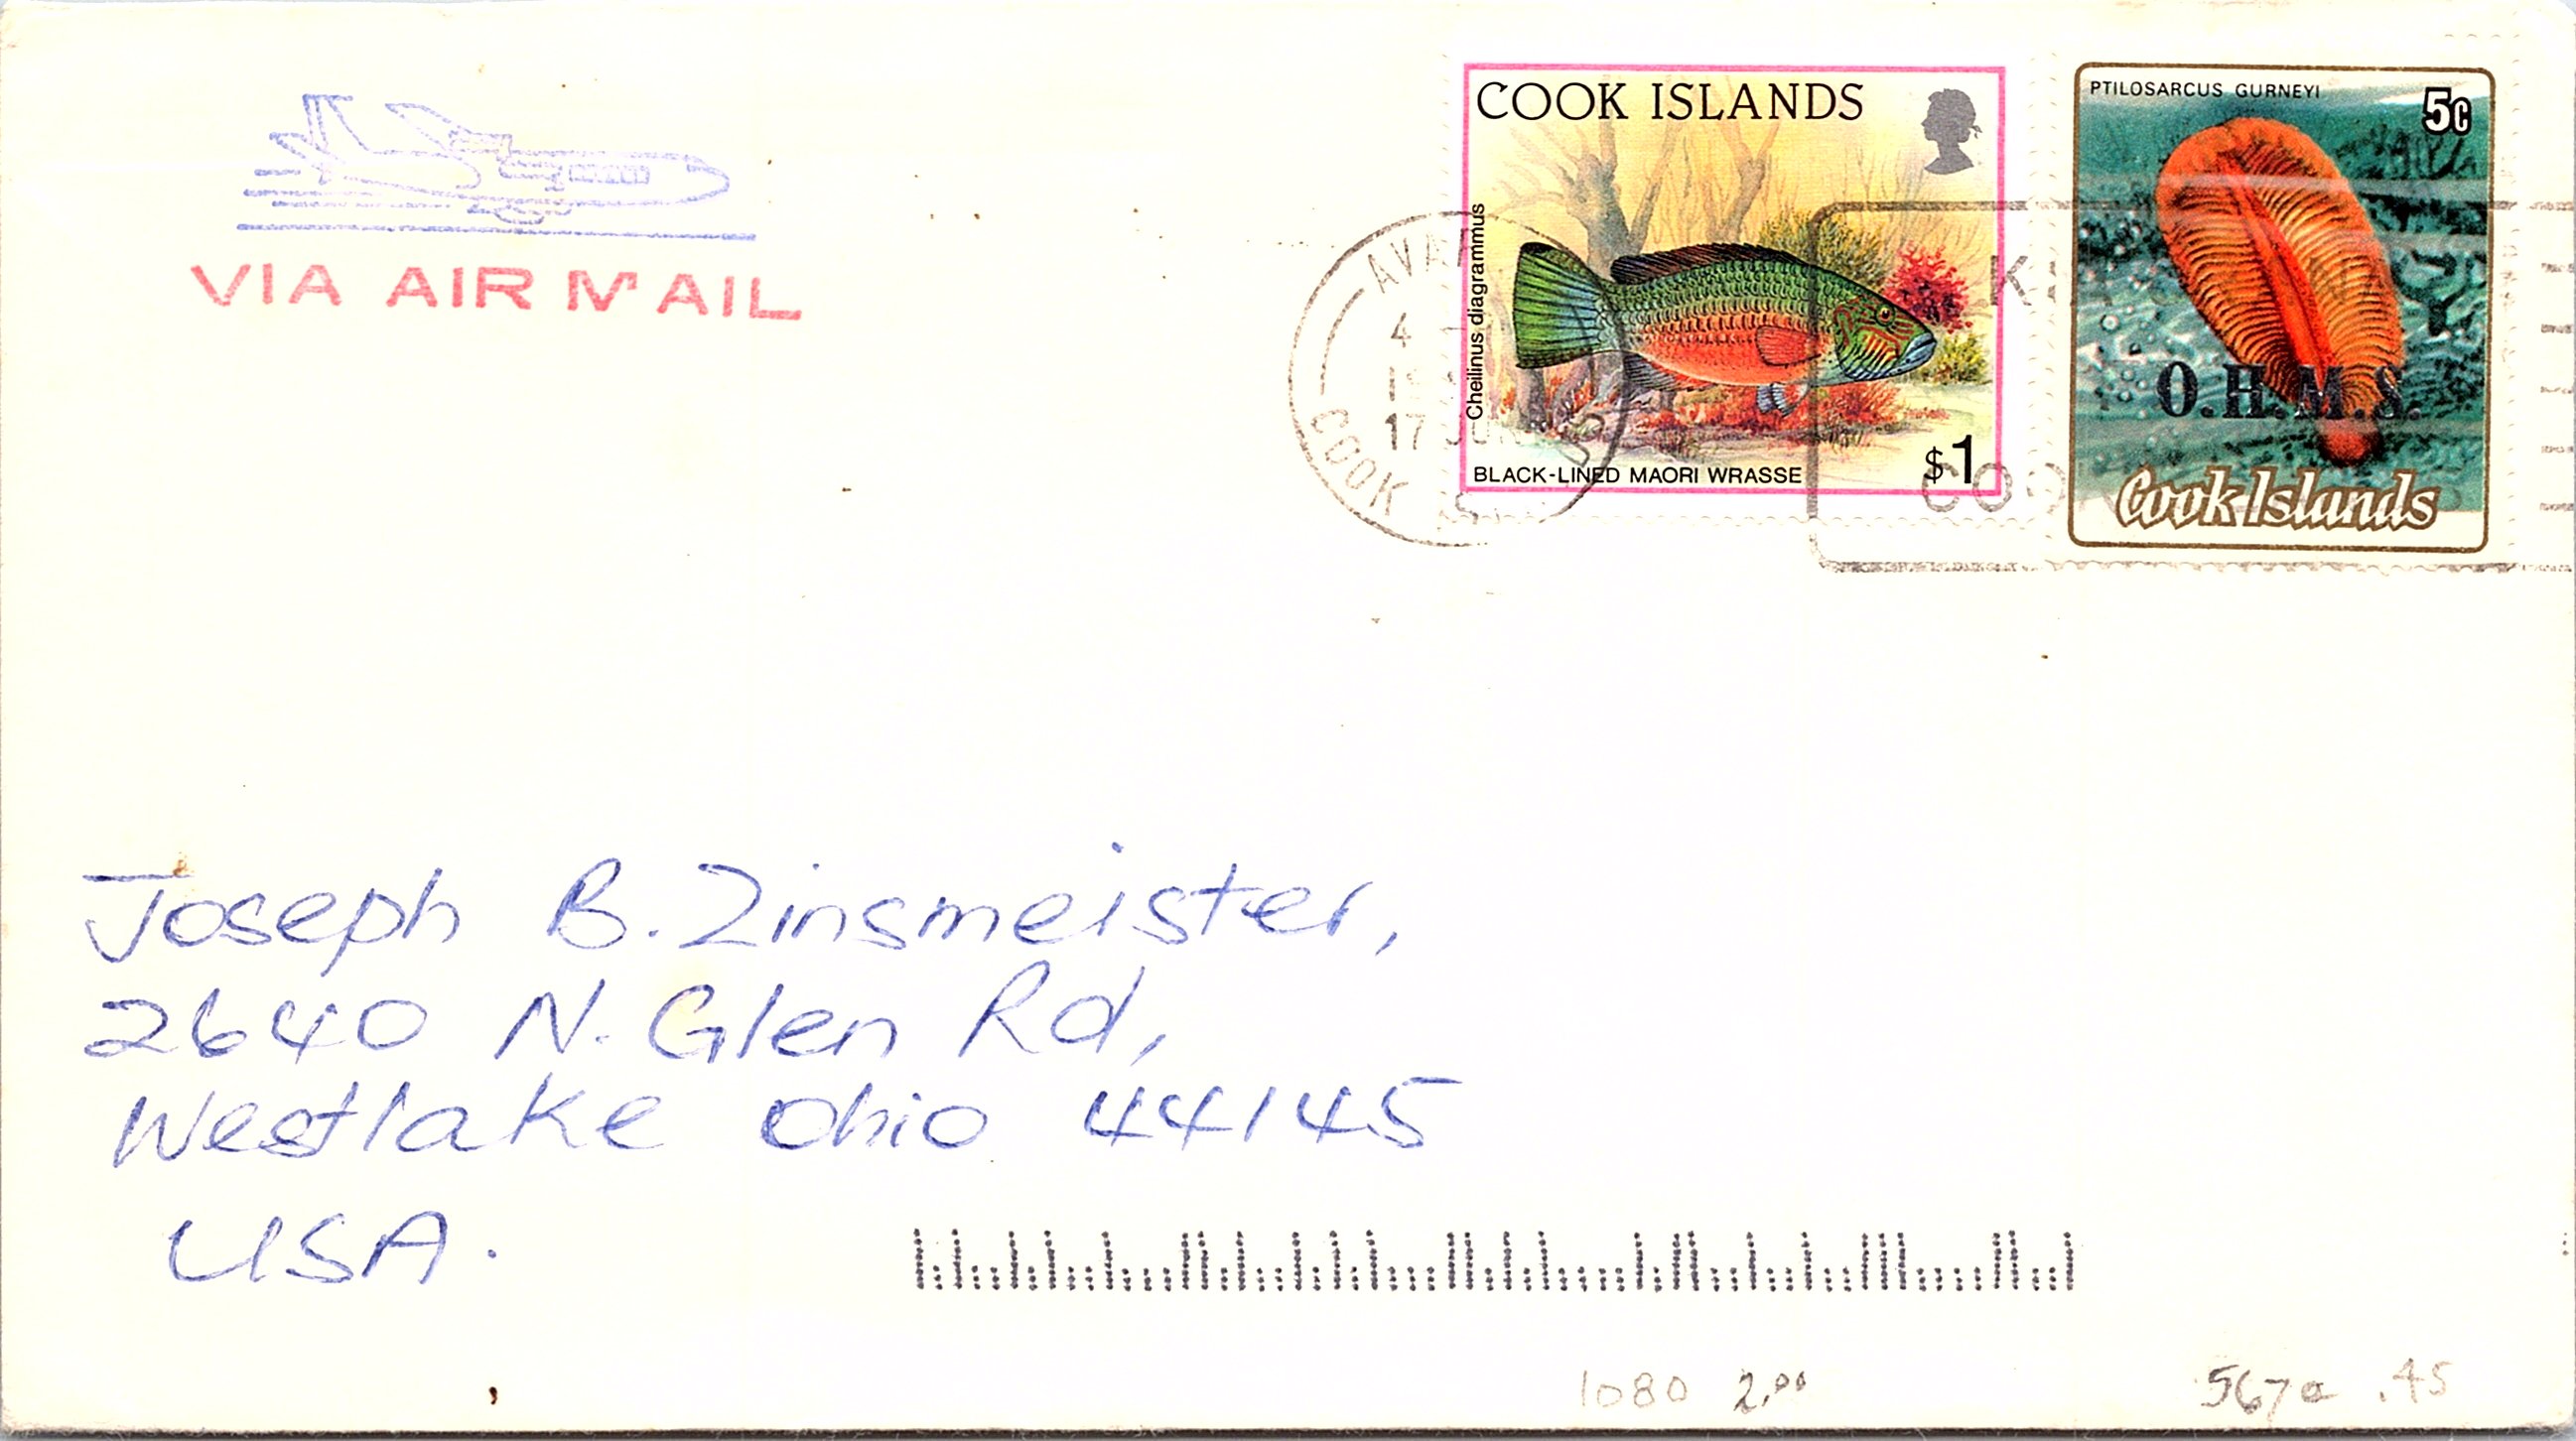 VIA AIR MAIL
COOK ISLANDS
Cheilinus diagrammus
BLACK-LINED MAORI WRASSE
$1
PTILOSARCUS GURNEYI
5c
O.H.M.S.
Cook Islands
4
17 JUN
COOK IS
Joseph B. Zinsmeister,
2640 N. Glen Rd,
Westlake Ohio 44145
USA.
1080 2.00
567a .45